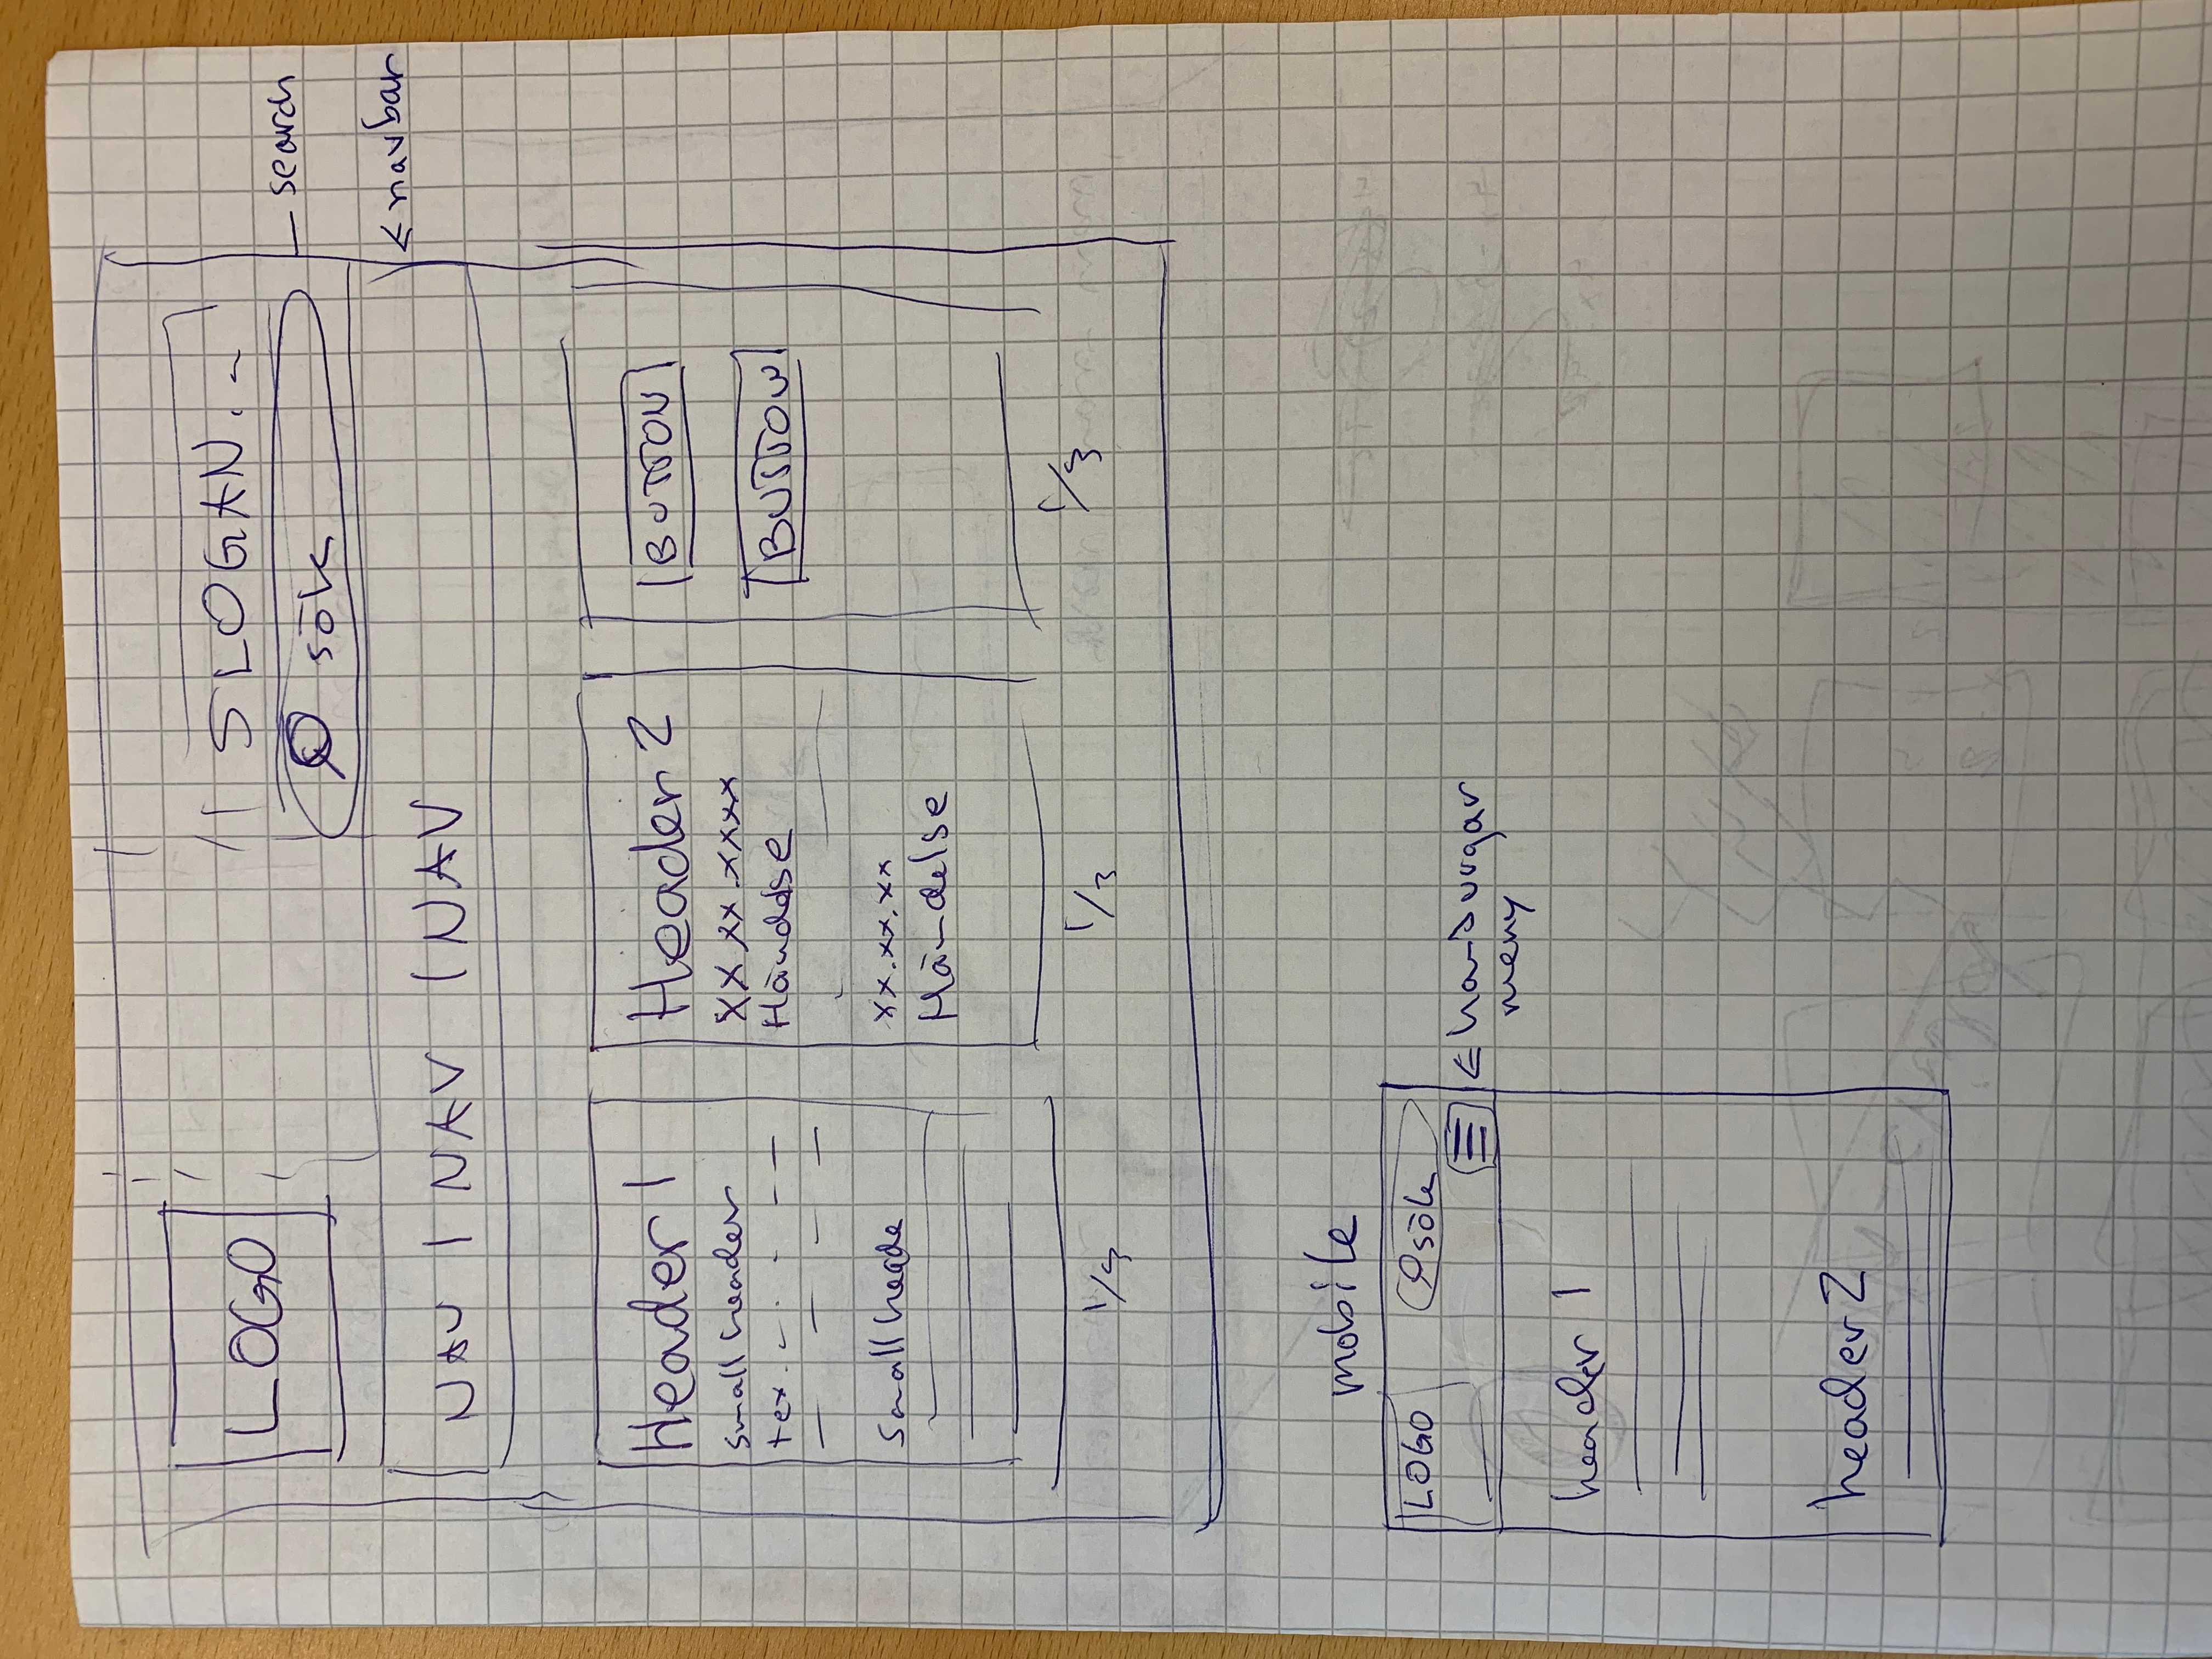 LOGO
SLOGAN..
sök
search
< navbar
NAV | NAV | NAV
Header 1
small header
tex.
small heade
Header 2
xx.xx.xxxx
Händelse
xx.xx.xx
Händelse
BUTTON
BUTTON
1/3
1/3
1/3
mobile
LOGO
sök
< hamburgar
meny
header 1
header 2